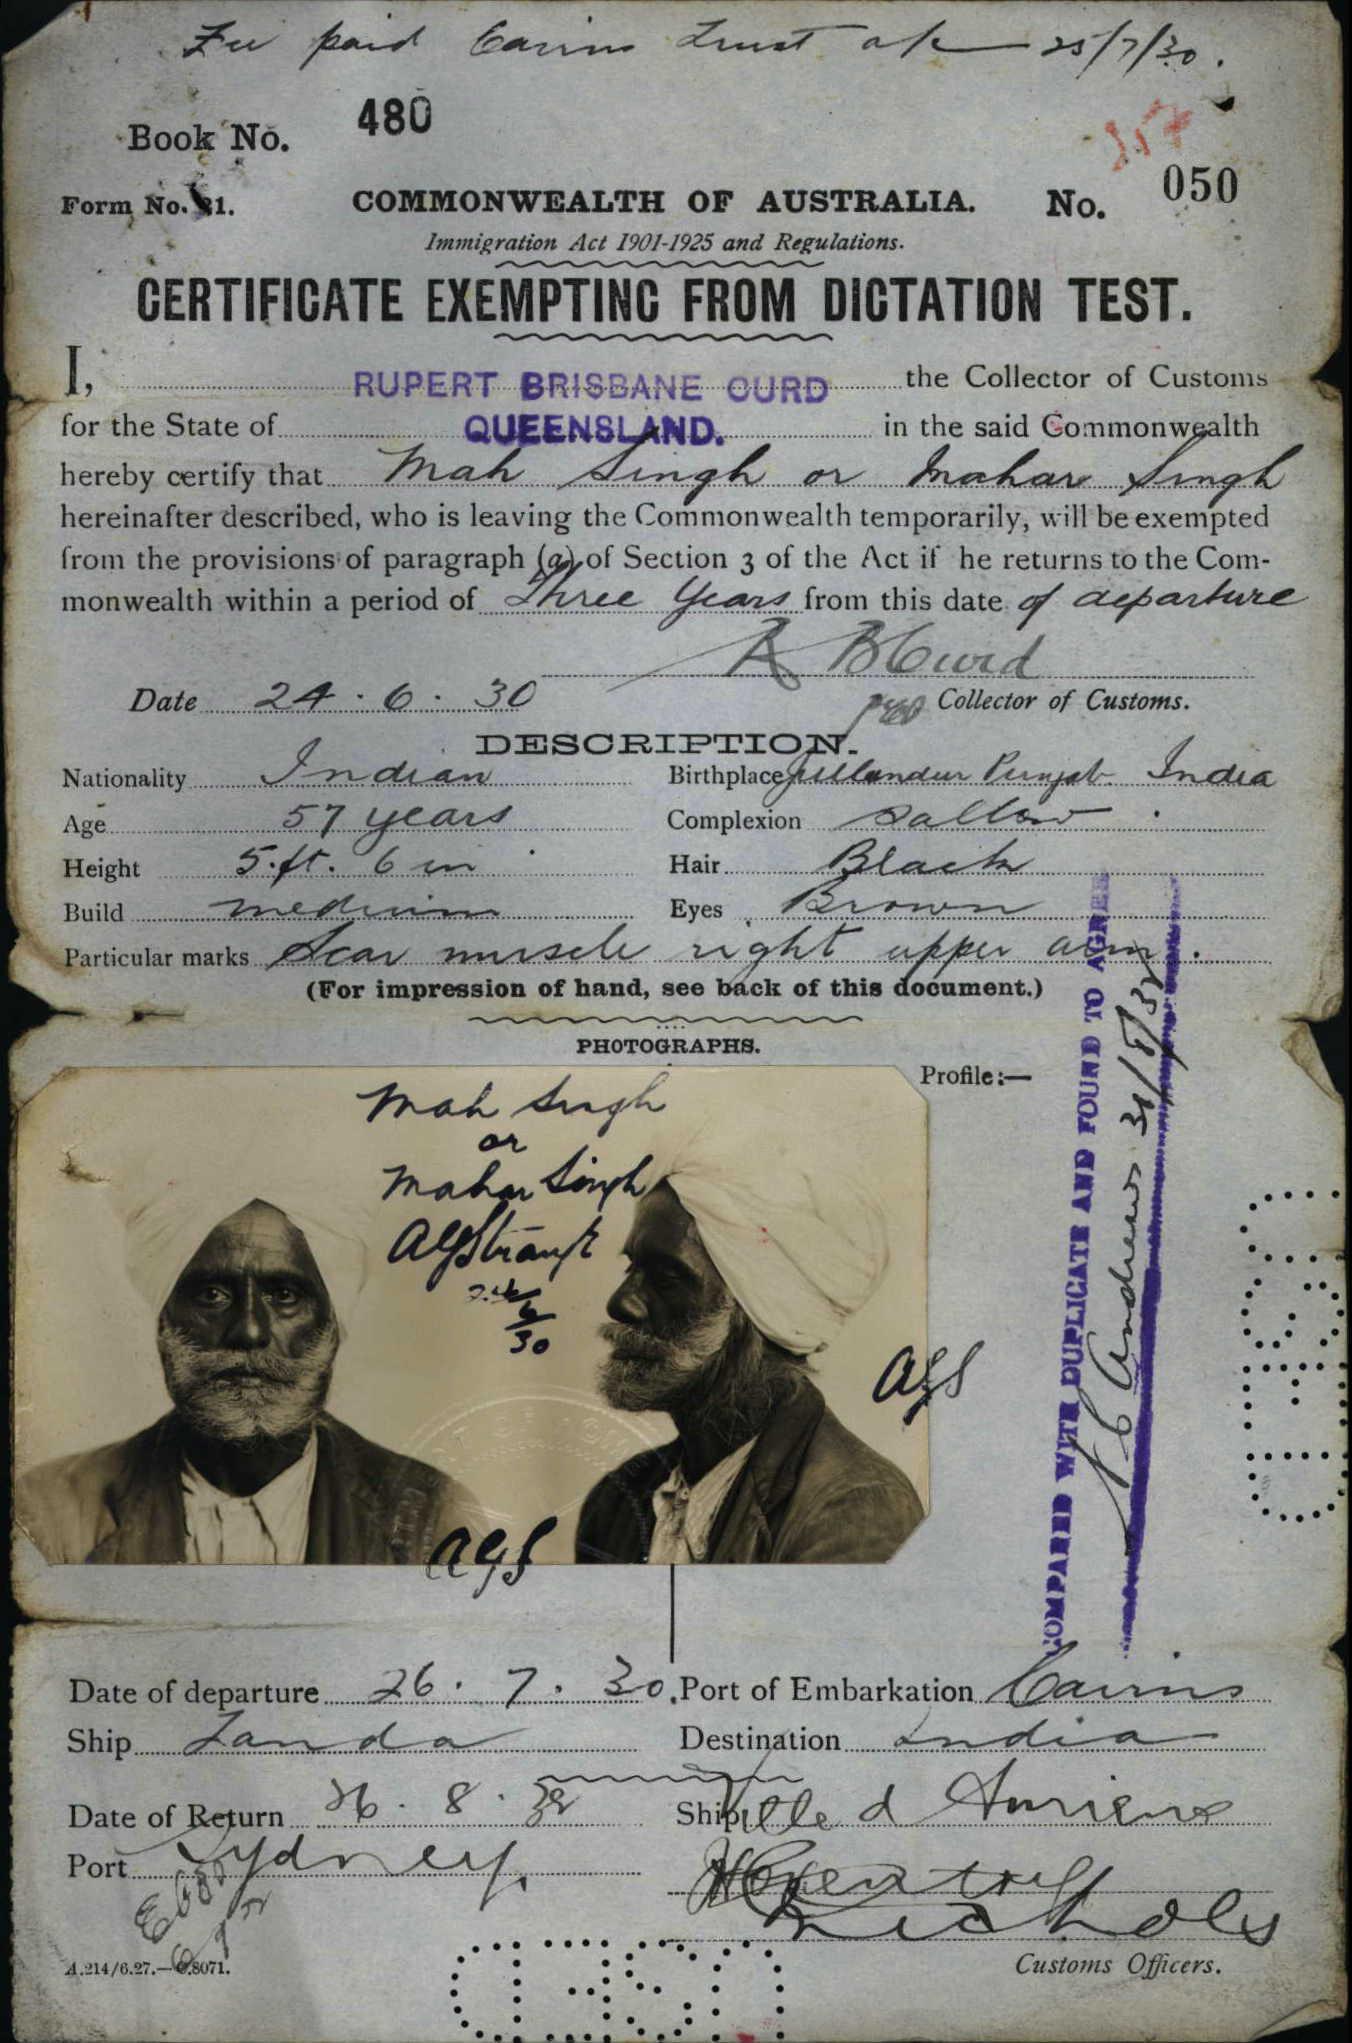 Fee paid Cairns Trust a/c 25/7/30.
Book No. 480
357
Form No. 21. COMMONWEALTH OF AUSTRALIA. No. 050
Immigration Act 1901-1925 and Regulations.
CERTIFICATE EXEMPTING FROM DICTATION TEST.
I, RUPERT BRISBANE CURD the Collector of Customs
for the State of QUEENSLAND. in the said Commonwealth
hereby certify that Mah Singh or Mahar Singh
hereinafter described, who is leaving the Commonwealth temporarily, will be exempted
from the provisions of paragraph (a) of Section 3 of the Act if he returns to the Com-
monwealth within a period of Three Years from this date of departure
R B Curd
Date 24.6.30 Collector of Customs.
DESCRIPTION.
Nationality Indian Birthplace Jullundur Punjab India
Age 57 years Complexion Sallow
Height 5.ft. 6 in Hair Black
Build medium Eyes Brown
Particular marks Scar muscle right upper arm.
(For impression of hand, see back of this document.)
PHOTOGRAPHS.
Profile:—
Mah Singh
or
Mahar Singh
24/6/30
AGS
AGS
COMPARED WITH DUPLICATE AND FOUND TO AGREE
Andrews 31/8/32
Date of departure 26.7.30. Port of Embarkation Cairns
Ship Tanda Destination India
Date of Return 26.8.32 Ship Ville d Amiens
Port Sydney.
Nichols
Customs Officers.
A.214/6.27.—C.8071.